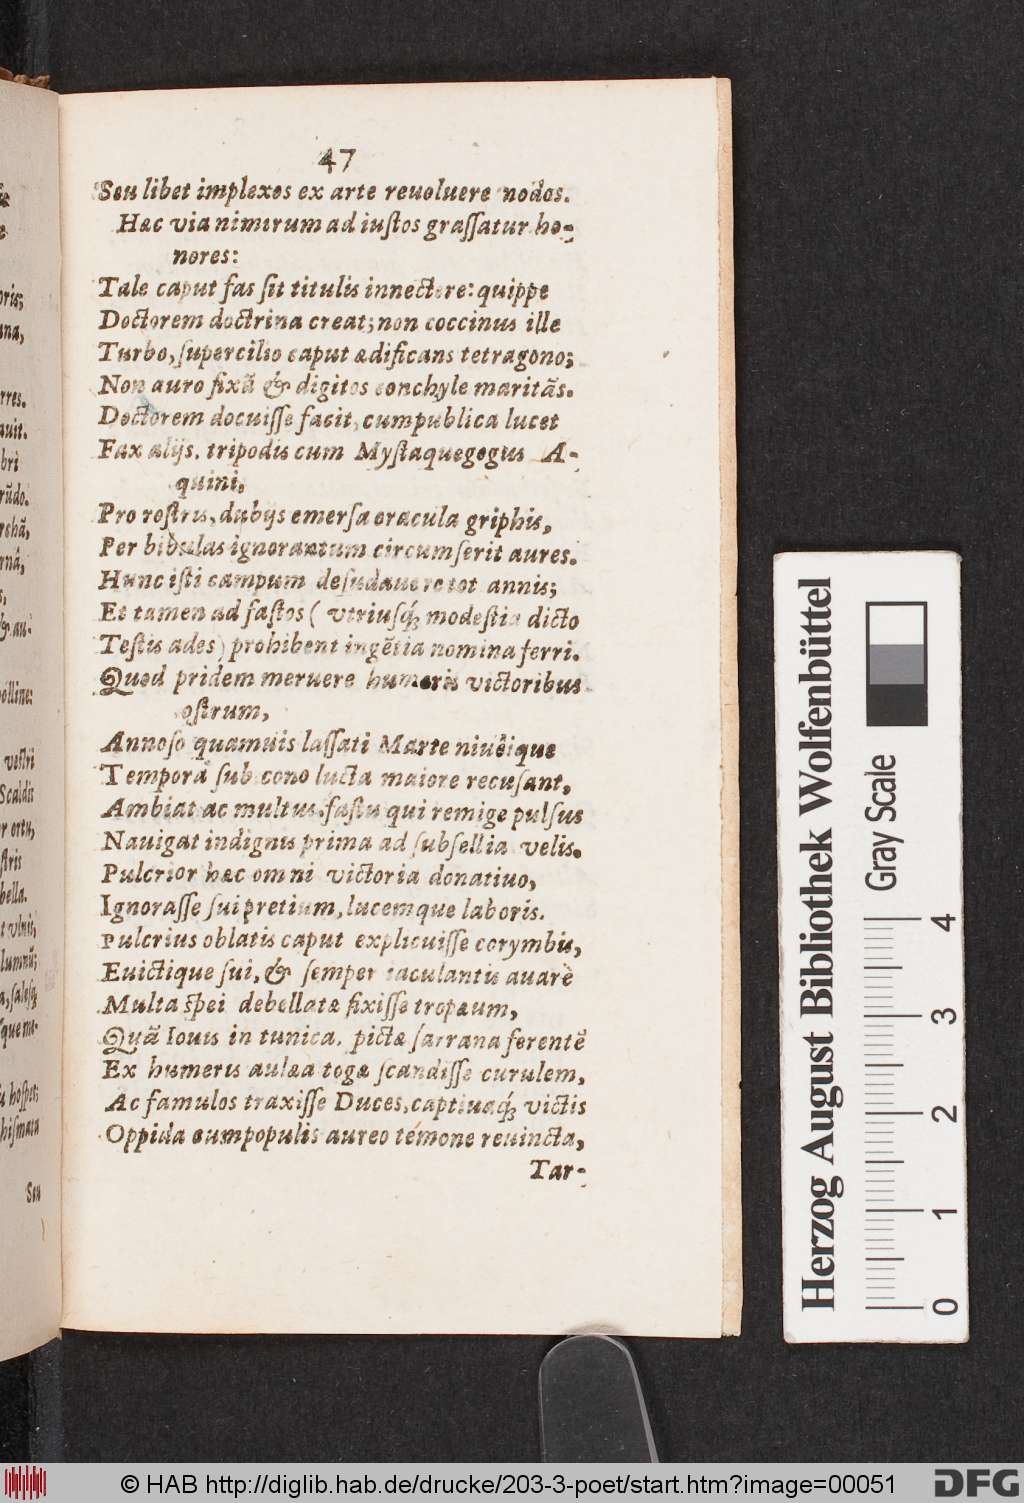 47
Seu libet implexos ex arte reuoluere nodos.
Hæc via nimirum ad iustos grassatur ho-
nores:
Tale caput fas sit titulis innectere: quippe
Doctorem doctrina creat; non coccinus ille
Turbo, supercilio caput ædificans tetragono;
Non auro fixã & digitos conchyle maritãs.
Doctorem docuisse facit, cum publica lucet
Fax alijs. tripodis cum Mystaquegogus A-
quini,
Pro rostris, dubijs emersa oracula griphis,
Per bibulas ignorantum circumserit aures.
Hunc isti campum desudauere tot annis;
Et tamen ad fastos ( vtriusq́; modestia dicto
Testis ades) prohibent ingẽtia nomina ferri.
Quod pridem meruere humeris victoribus
ostrum,
Annoso quamuis lassati Marte niueique
Tempora sub cono lucta maiore recusant,
Ambiat ac multus fastu qui remige pulsus
Nauigat indignis prima ad subsellia velis.
Pulcrior hæc omni victoria donatiuo,
Ignorasse sui pretium, lucemque laboris.
Pulcrius oblatis caput explicuisse corymbis,
Euictique sui, & semper iaculantis auarè
Multa spei debellatæ fixisse tropæum,
Quã Iouis in tunica. pictæ sarrana ferentẽ
Ex humeris aulæa togæ scandisse curulem,
Ac famulos traxisse Duces, captiuaq́; victis
Oppida cum populis aureo temone reuincta,
Tar-
oris;
ana,
rres.
auit.
bri
rũdo.
rshã,
rnâ,
& au-
olline:
vestri
Scaldis
r ortu,
stris
bella.
t vlnis,
lumnũ;
a, salesq́
sque me-
u hospes;
hismata
Seu
Herzog August Bibliothek Wolfenbüttel
Gray Scale
0 1 2 3 4
© HAB http://diglib.hab.de/drucke/203-3-poet/start.htm?image=00051
DFG